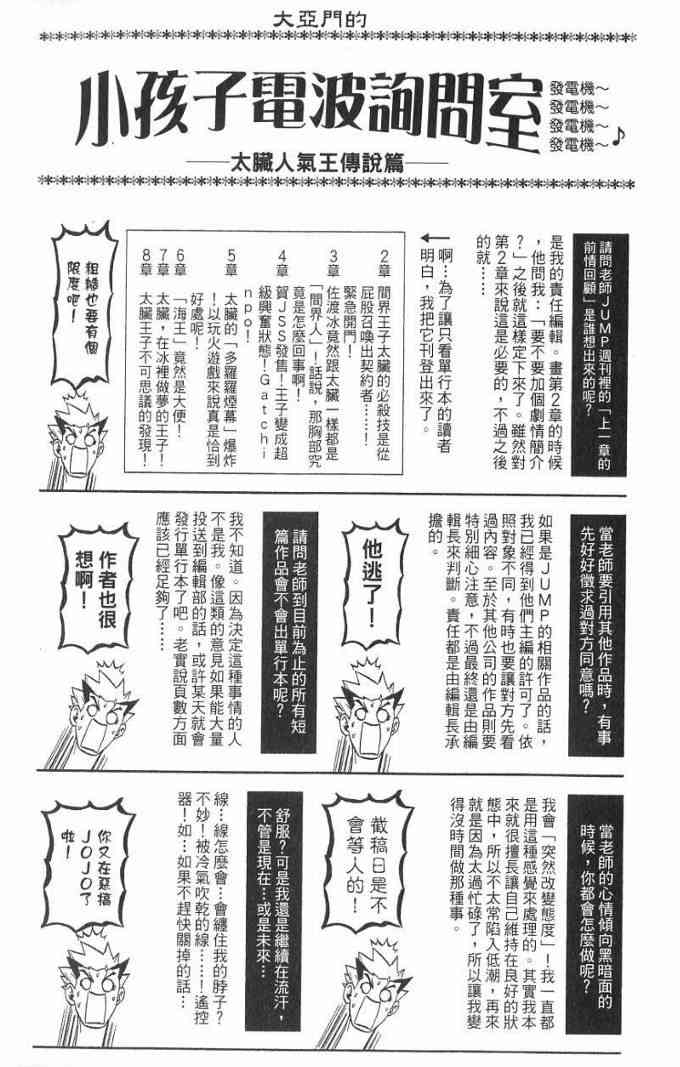 大亞門的
小孩子電波詢問室
發電機～
發電機～
發電機～
發電機～♪
──太臟人氣王傳說篇──
請問老師JUMP週刊裡的「上一章的
前情回顧」是誰想出來的呢？
是我的責任編輯。畫第2章的時候
，他問我：「要不要加個劇情簡介
？」之後就這樣定下來了。雖然對
第2章來說這是必要的，不過之後
的就……
啊…為了讓只看單行本的讀者
明白，我把它刊登出來了。
2章　間界王子太臟的必殺技是從
屁股召喚出契約者……！
緊急開門！
3章　佐渡冰竟然跟太臟一樣都是
「間界人」！話說，那胸部究
竟是怎麼回事啊！
4章　賀JSS發售！王子變成超
級興奮狀態！Gatchi
npo！
5章　太臟的「多羅羅煙幕」爆炸
！以玩火遊戲來說真是恰到
好處呢！
6章　「海王」竟然是大便！
7章　太臟，在冰裡做夢的王子！
8章　太臟王子不可思議的發現！
粗糙也要有個
限度吧！
當老師要引用其他作品時，有事
先好好徵求過對方同意嗎？
如果是JUMP的相關作品的話，
我已經得到他們主編的許可了。依
照對象不同，有時也要讓對方先看
過內容。至於其他公司的作品則要
特別細心注意，不過最終還是由編
輯長來判斷。責任都是由編輯長承
擔的。
他逃了！
請問老師到目前為止的所有短
篇作品會不會出單行本呢？
我不知道。因為決定這種事情的人
不是我。像這類的意見如果能大量
投送到編輯部的話，或許某天就會
發行單行本了吧。老實說頁數方面
應該已經足夠了……
作者也很
想啊！
當老師的心情傾向黑暗面的
時候，你都會怎麼做呢？
我會「突然改變態度」！我一直都
是用這種感覺來處理的。其實我本
來就很擅長讓自己維持在良好的狀
態中，所以不太常陷入低潮，再來
就是因為太過忙碌了，所以讓我變
得沒時間做那種事。
截稿日是不
會等人的！
舒服？可是我還是繼續在流汗，
不管是現在…或是未來…
線…線怎麼會…會纏住我的脖子？
不妙！被冷氣吹乾的線……！遙控
器！如…如果不趕快關掉的話…
你又在惡搞
JOJO了
啦！